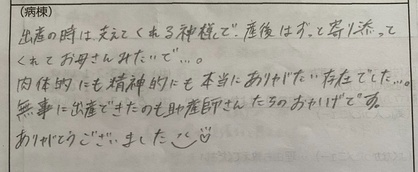 (病棟)
出産の時は支えてくれる神様で、産後はずっと寄り添って
くれてお母さんみたいで…。
肉体的にも精神的にも本当にありがたい存在でした…。
無事に出産できたのも助産師さんたちのおかげです。
ありがとうございました